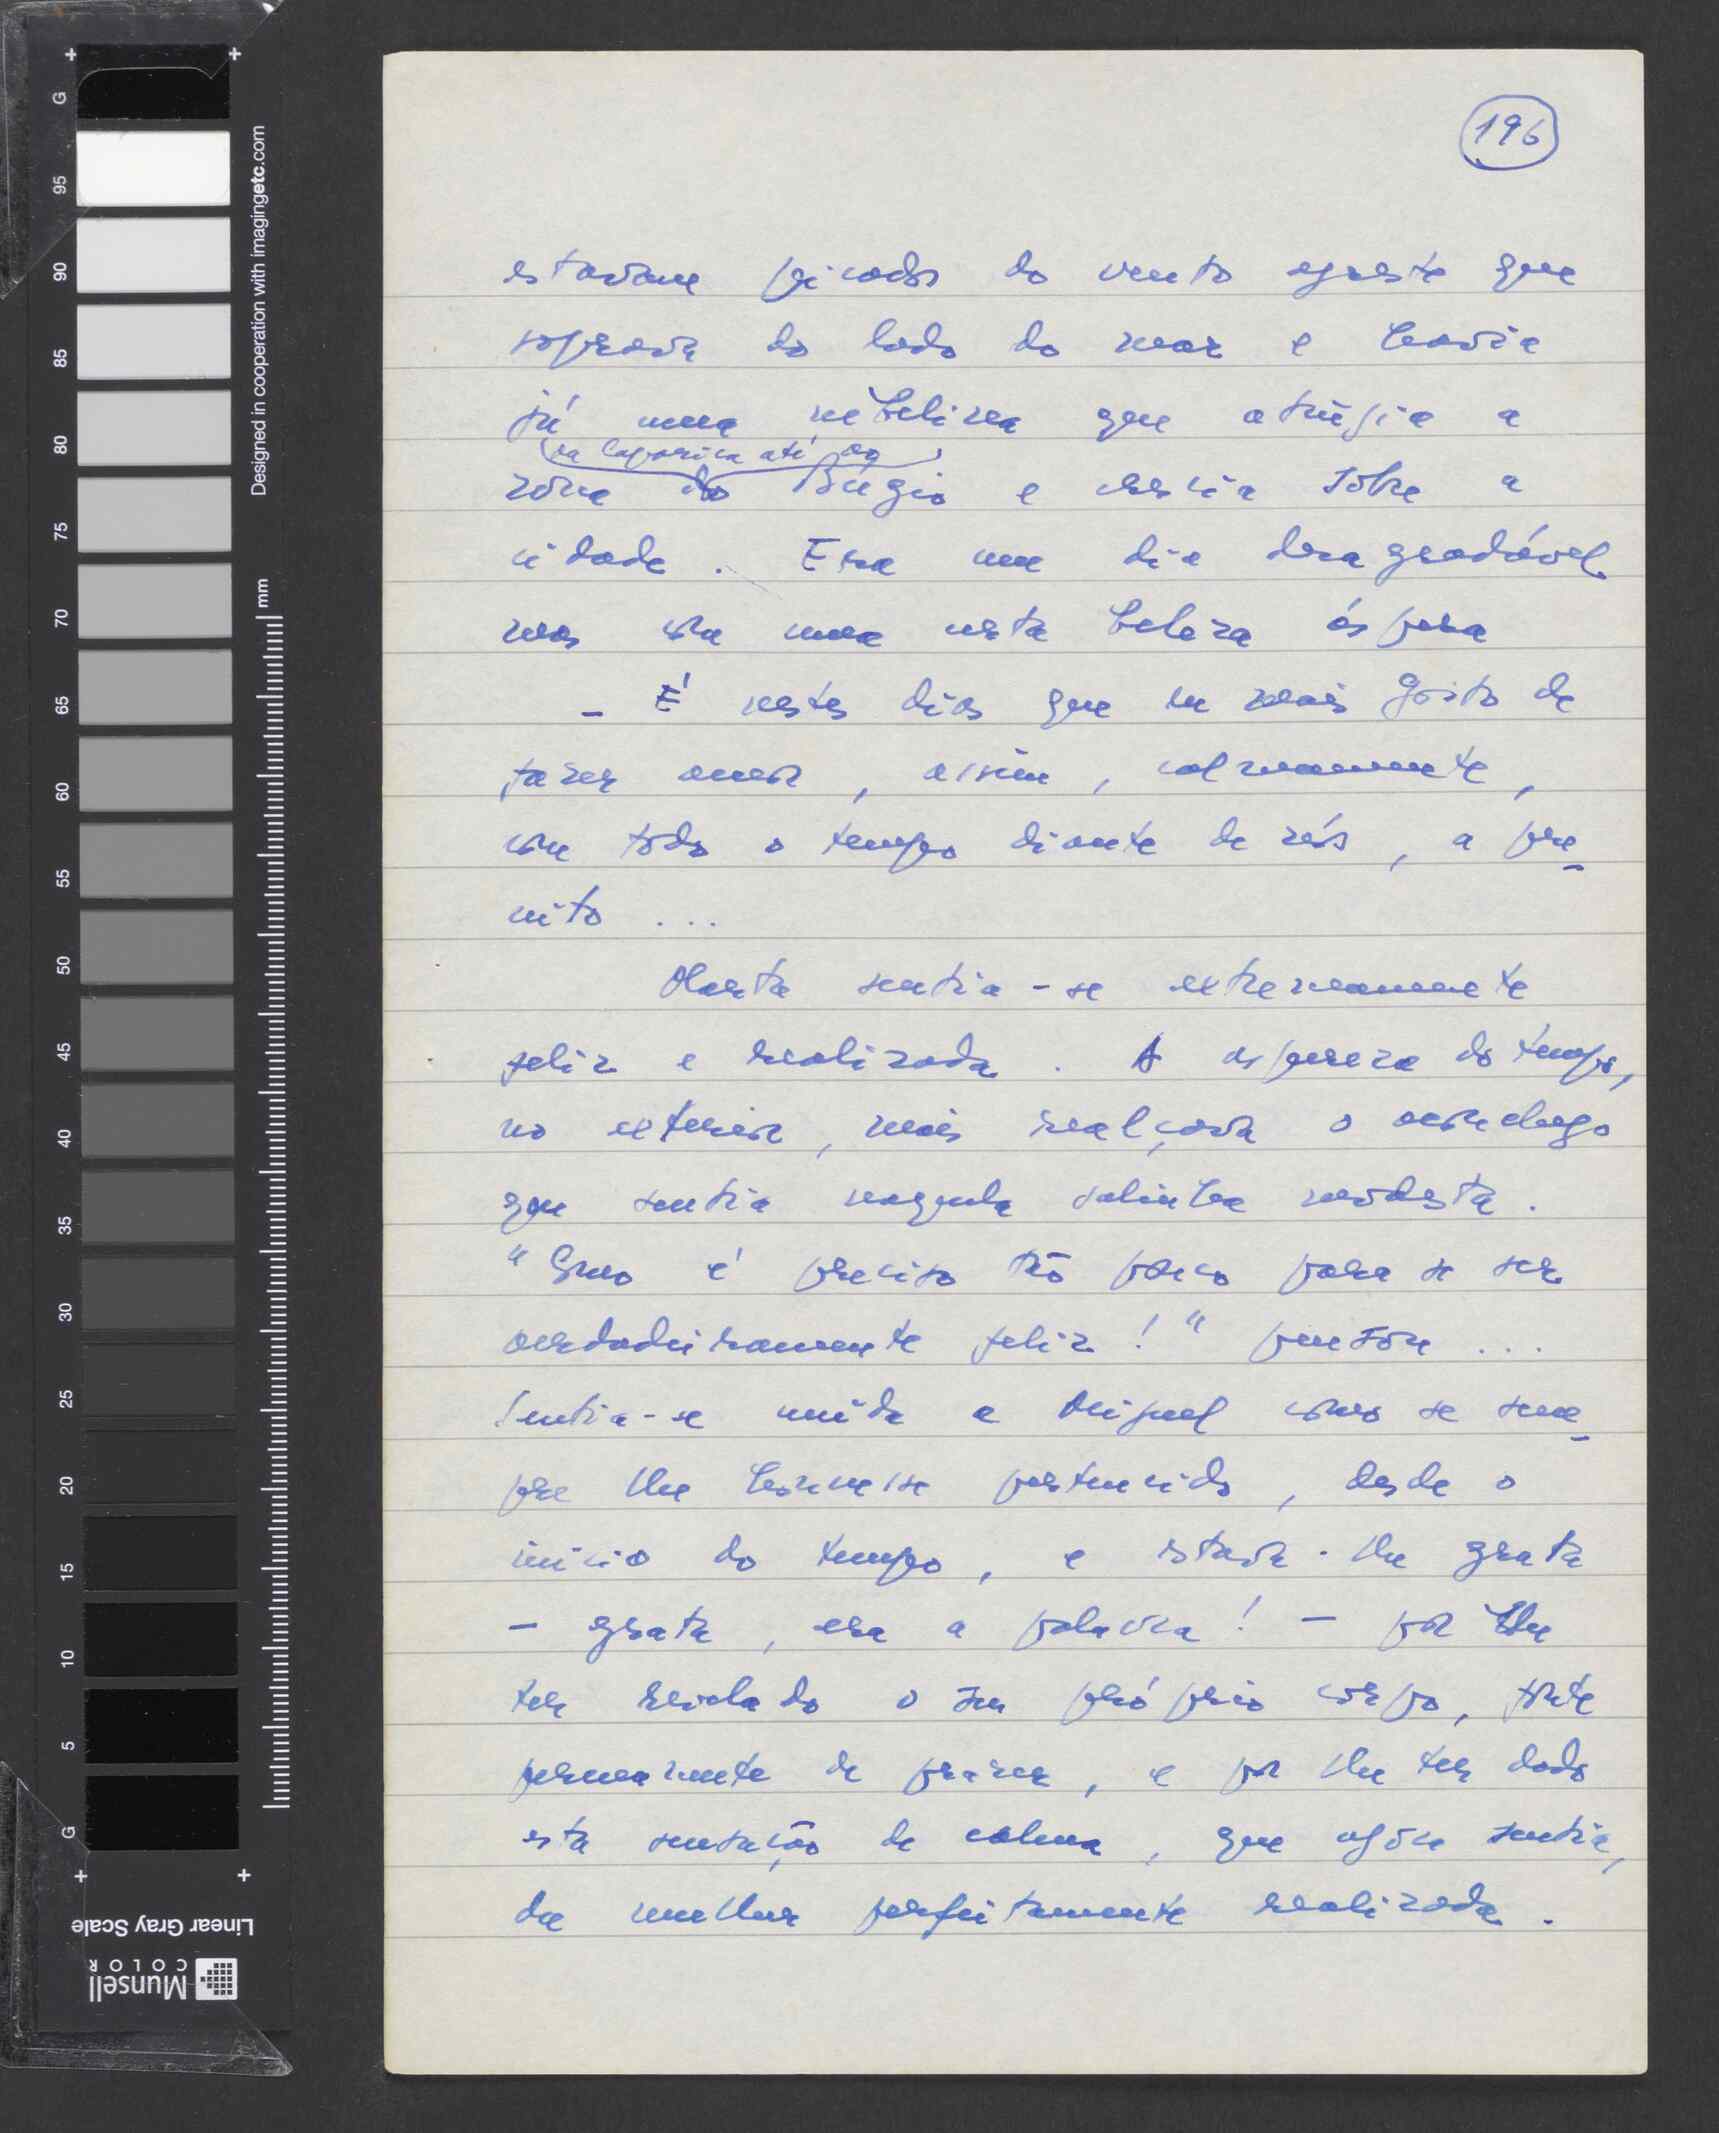 196
estavam picados do vento agreste que
soprava do lado do mar e havia
já uma neblina que atingia a
da Caparica até ao
zona do Búgio e crescia sobre a
cidade. Era um dia desagradável
mas com uma certa beleza áspera
- É nestes dias que eu mais gosto de
fazer amor, assim, calmamente,
com todo o tempo diante de nós, a pre-
ceito ...
Marta sentia-se extremamente
feliz e realizada. A aspereza do tempo,
no exterior, mais realçava o aconchego
que sentia naquela salinha modesta.
"Como é preciso tão pouco para se ser
verdadeiramente feliz!" pensou ...
Sentia-se unida a Miguel como se sem-
pre lhe houvesse pertencido, desde o
início do tempo, e estava-lhe grata
- grata, era a palavra! - por lhe
ter revelado o seu próprio corpo, fonte
permanente de prazer, e por lhe ter dado
esta sensação de calma, que agora sentia,
de mulher perfeitamente realizada.
G
95
90
85
80
75
70
65
60
55
50
45
40
35
30
25
20
15
10
5
G
Designed in cooperation with imagingetc.com
mm
Linear Gray Scale
Munsell
COLOR